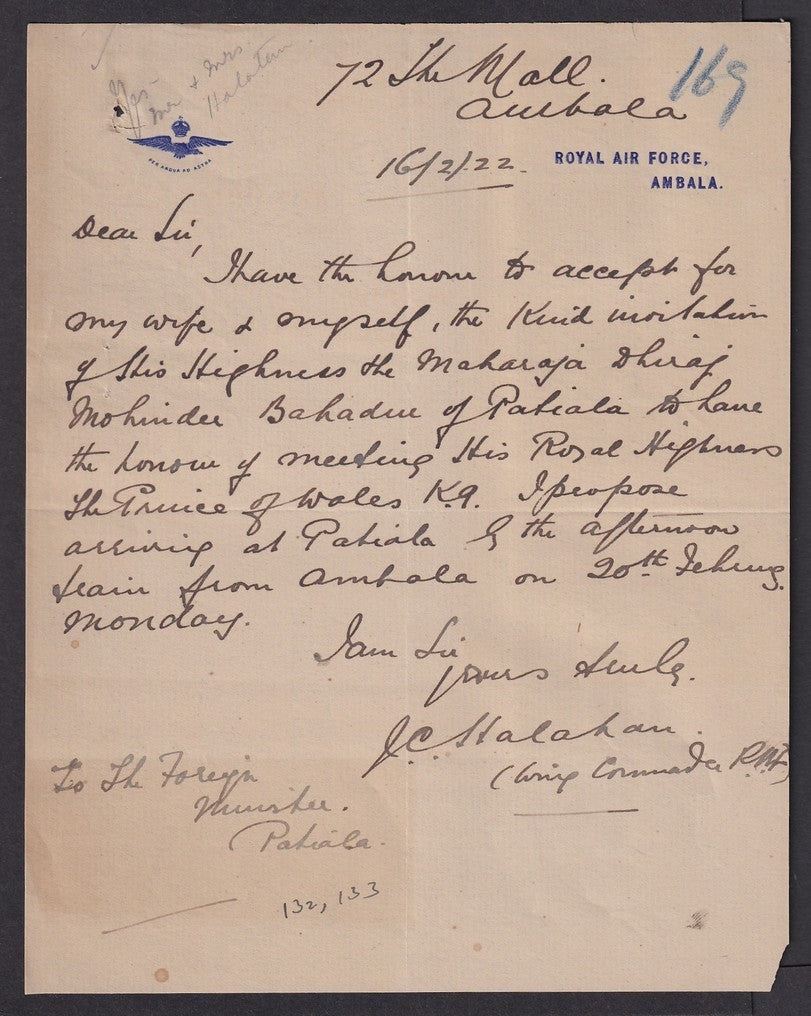 Yes
Mr & Mrs
Halatan
72 The Mall.
Ambala
169
PER ARDUA AD ASTRA
16/2/22.
ROYAL AIR FORCE,
AMBALA.
Dear Sir,
I have the honour to accept for
my wife & myself, the Kind invitation
of His Highness the Maharaja Dhiraj
Mohinder Bahadur of Patiala to have
the honour of meeting His Royal Highness
The Prince of Wales K.G. I propose
arriving at Patiala by the afternoon
train from Ambala on 20th February.
Monday.
I am Sir
yours truly.
J.C. Halahan.
(Wing Commander R.A.F.)
To The Foreign
Minister.
Patiala.
132, 133